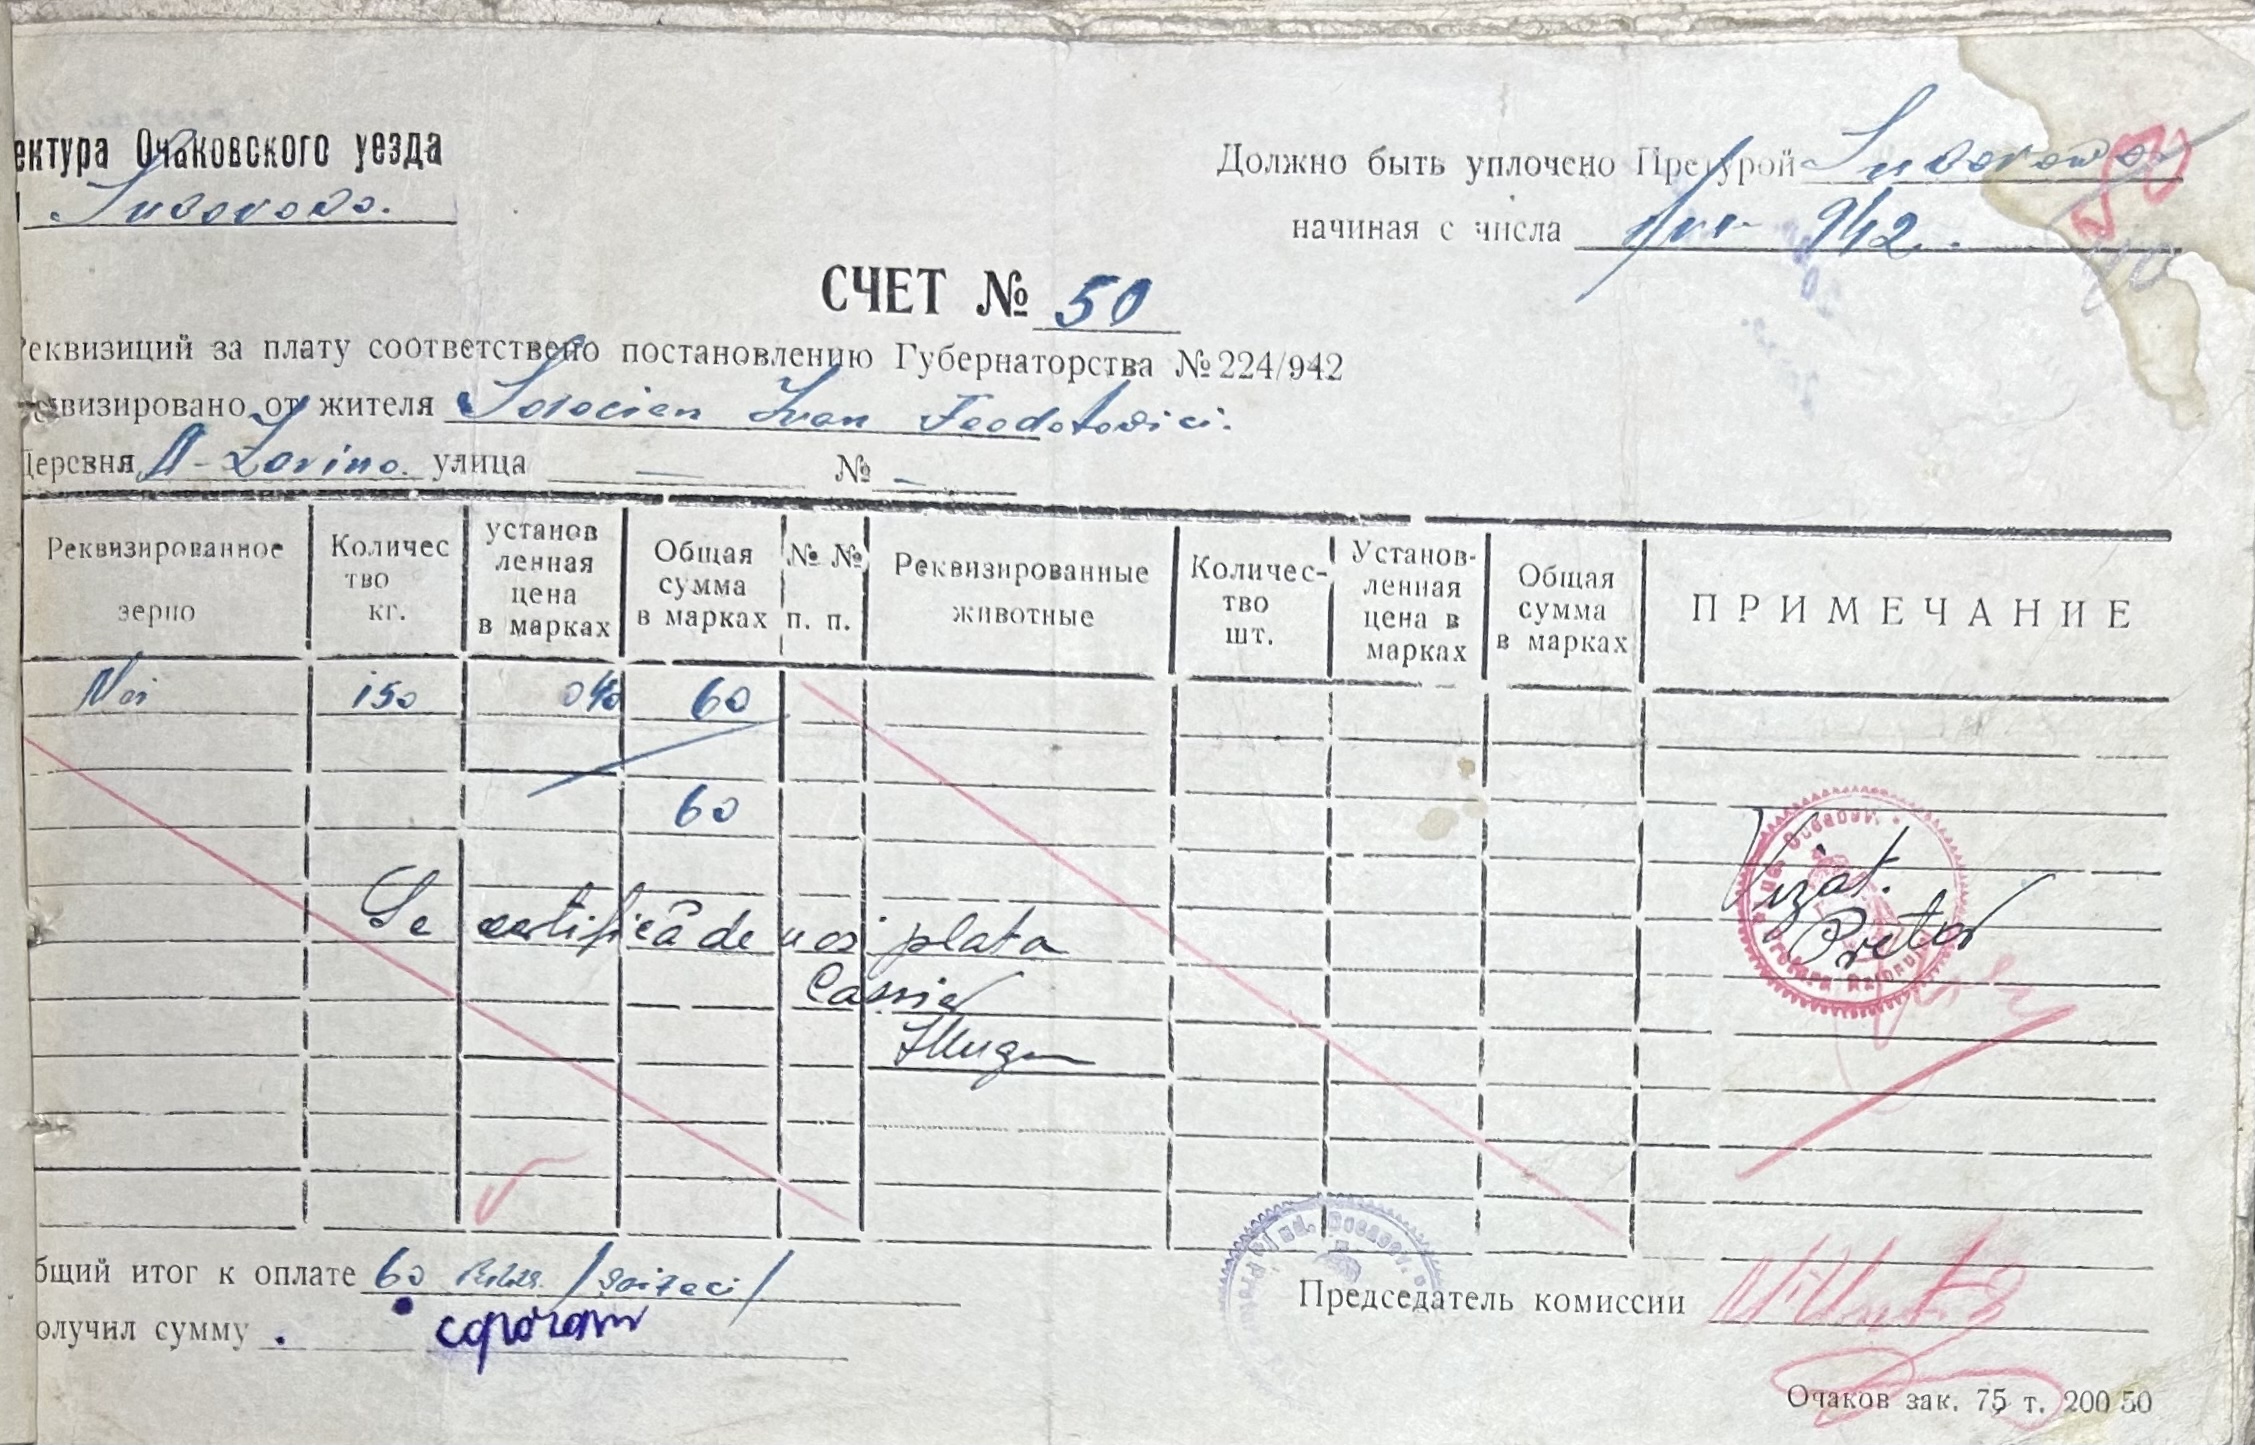 ектура Очаковского уезда
Suvorovo.
Должно быть уплочено Претурой Suvorowo
начиная с числа 942.
50
СЧЕТ № 50
Реквизиций за плату соответствено постановлению Губернаторства № 224/942
квизировано от жителя Ivan Feodotovici.
Деревня A-Zorino. улица — № -
Реквизированное зерно
Количес тво кг.
установ ленная цена в марках
Общая сумма в марках
№ № п. п.
Реквизированные животные
Количес- тво шт.
Установ- ленная цена в марках
Общая сумма в марках
ПРИМЕЧАНИЕ
150 040 60
60
Se certifică de noi plata
Casier
Vizat.
Pretor
бщий итог к оплате 60 /saizeci/
олучил сумму
Председатель комиссии
Очаков зак. 75 т. 200 50